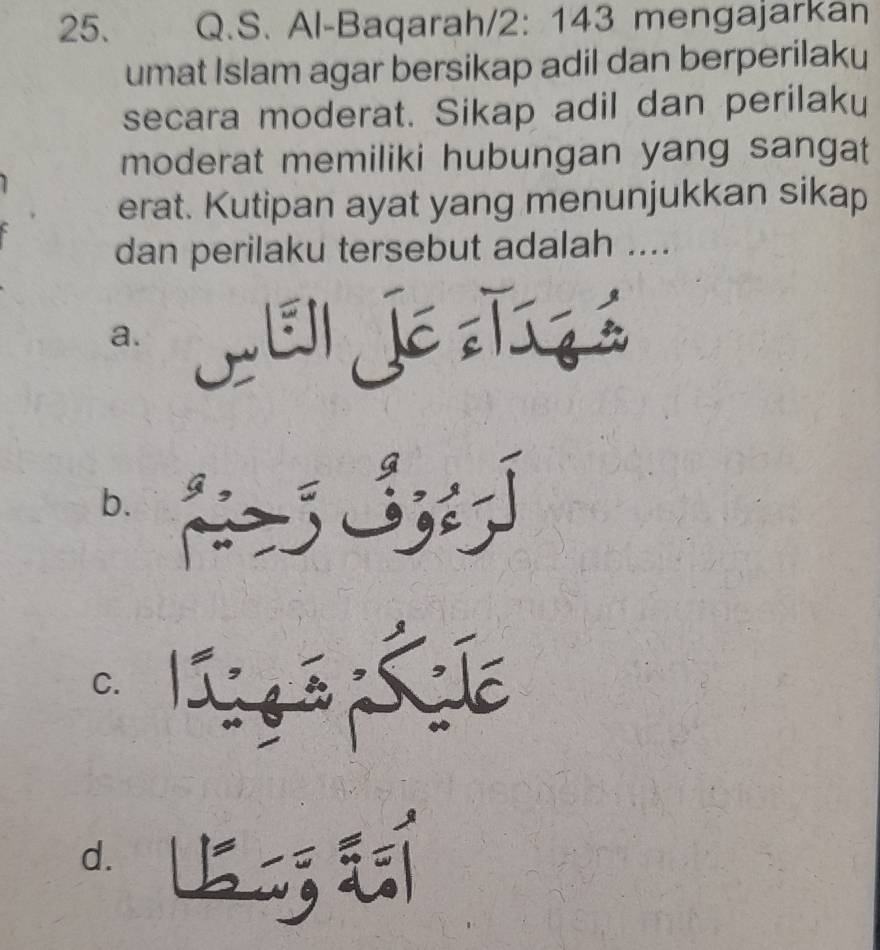 25. Q.S. Al-Baqarah/2: 143 mengajarkan
umat Islam agar bersikap adil dan berperilaku
secara moderat. Sikap adil dan perilaku
moderat memiliki hubungan yang sangat
erat. Kutipan ayat yang menunjukkan sikap
dan perilaku tersebut adalah ....
a. شُهَدَآءَ عَلَى النَّاسِ
b. لَرَءُوْفٌ رَّحِيْمٌ
c. عَلَيْكُمْ شَهِيْدًا
d. أُمَّةً وَّسَطًا